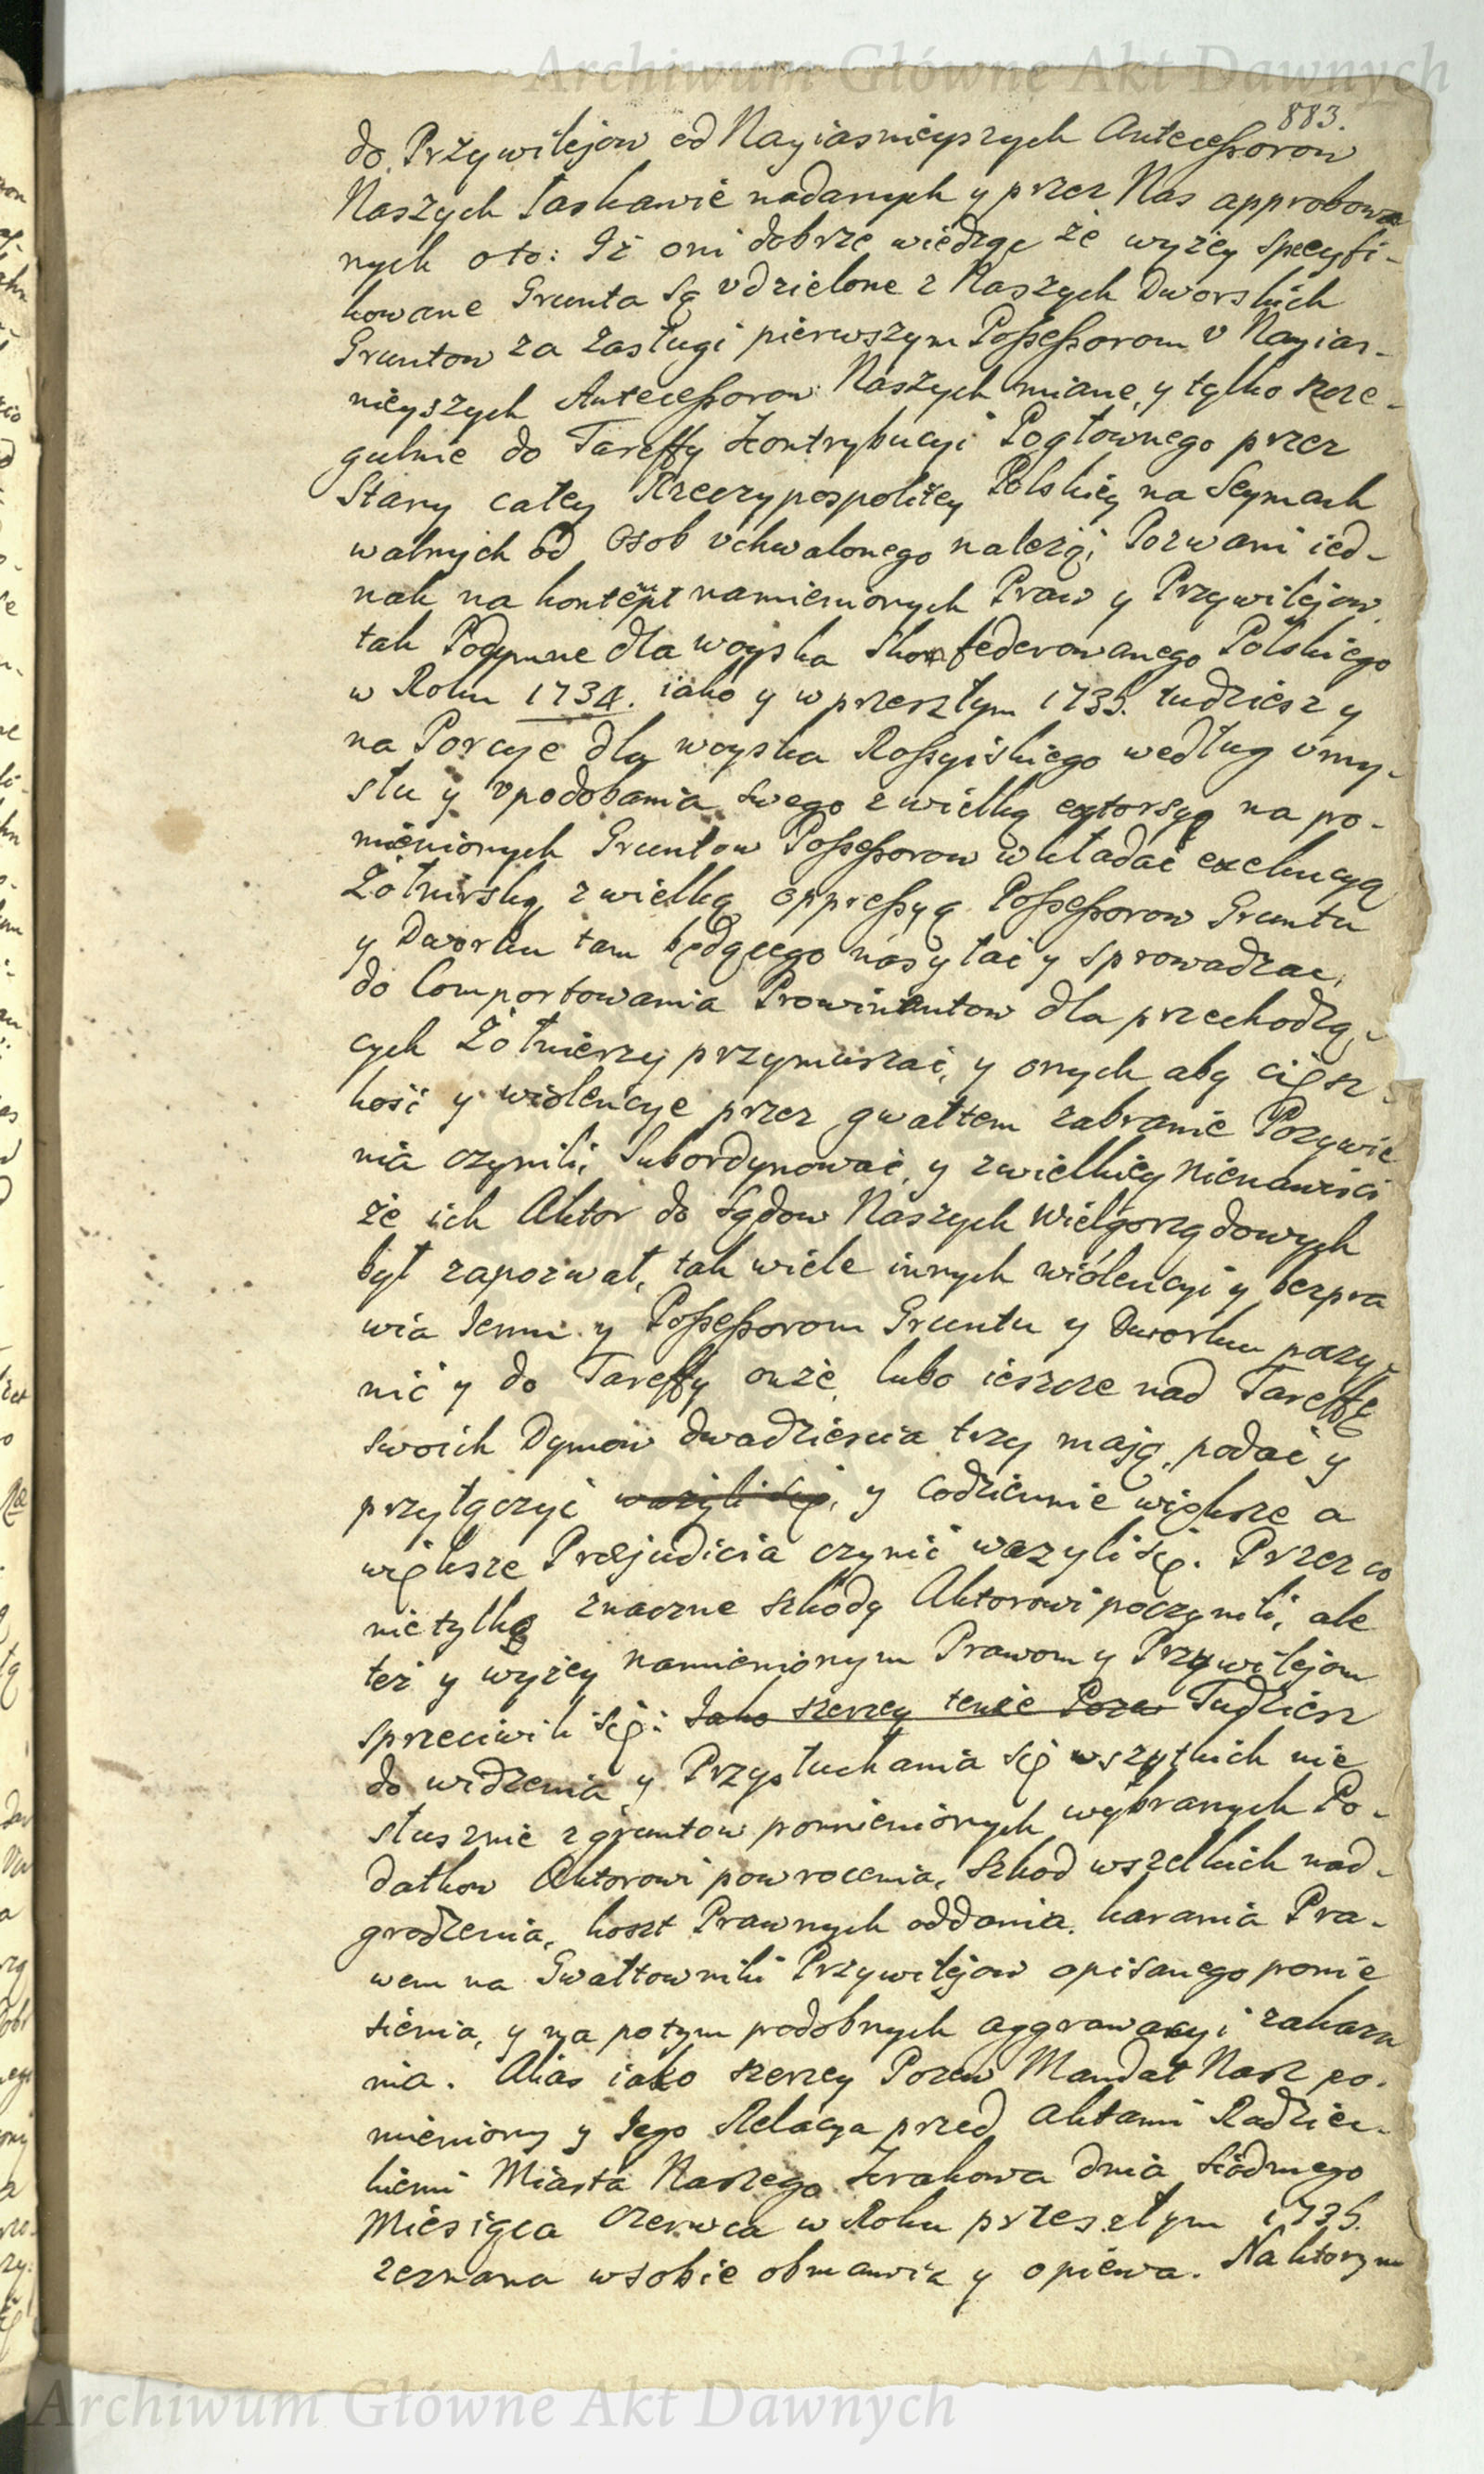 Archiwum Główne Akt Dawnych
883.
do Przywilejow od Nayiasnieyszych Antecessorow
Naszych łaskawie nadanych y przez Nas approbowa
nych oto: Iż oni dobrze wiedząc że wyżey specyfi-
kowane Grunta są vdzielone z Naszych Dworskich
Gruntow za zasługi pierwszym Possessorom v Nayias-
nieyszych Antecessorow Naszych miane, y tylko szcze-
gulnie do Tareffy Kontrybucyi Pogłownego przez
Stany całey Rzeczypospolitey Polskiey na Seymach
walnych od Osob vchwalonego należą; Pozwani ied-
nak na kontempt namienionych Praw y Przywilejow
tak Podymne dla woyska Skonfederowanego Polskiego
w Roku 1734. iako y w przeszłym 1735. tudziesz y
na Porcye dla woyska Rossyiskiego według vmy-
słu y vpodobania swego z wielką extorsyą na po-
mienionych Gruntow Possessorow wkładać exekucyą
Żołnirską z wielką oppressyą Possessorow Gruntu
y Dworku tam będącego nasyłać y sprowadzać,
do Comportowania Prowiantow dla przechodzą-
cych Żołnierzy przymuszać, y onych aby cięsz-
kość y wiolencye przez gwałtem zabranie Pożywie
nia czynili, Subordynować, y z wielkiey nienawiści
że ich Aktor do Sądow Naszych Wielgorządowych
był zapozwał, tak wiele innych wiolencyi y bezpra
wia Jemu y Possessorom Gruntu y Dworku poczy-
nić y do Tareffy onże, lubo ieszcze nad Tareffę
swoich Dymow dwadziescia trzy mają, podać y
przyłączyć ważyli się, y codziennie większe a
większe Præjudicia czynić ważyli się. Przez co
nietylko znaczne szkody Aktorowi poczynili, ale
też y wyżey namienionym Prawom y Przywilejom
sprzeciwili się: Jako szerzey tenże Pozew Tudziesz
do widzenia y Przysłuchania się wszytkich nie
słusznie z gruntow pomienionych wybranych Po-
datkow Aktorowi powrocenia, Szkod wszelkich nad-
grodzenia, koszt Prawnych oddania, karania Pra-
wem na Gwałtowniki Przywilejow opisanego ponie
sienia, y na potym podobnych aggrawacyi zakaza
nia. Alias iako szerzey Pozew Mandat Nasz po-
mieniony y Jego Relacya przed Aktami Radziec-
kiemi Miasta Naszego Krakowa dnia Siodmego
Miesiąca Czerwca w Roku przeszłym 1735.
zeznana w sobie obmawia y opiewa. Na ktorym
Archiwum Główne Akt Dawnych